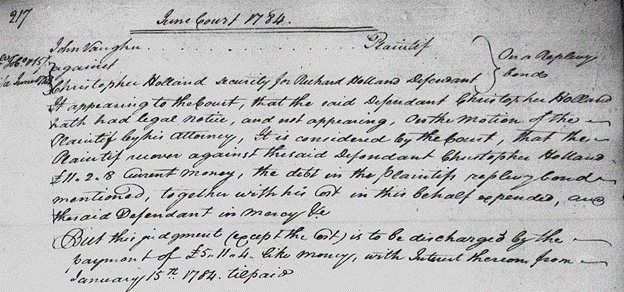 217
June Court 1784.
John Vaughn . . . . . . . . Plaintif
against
On a Replevy
bond
Christopher Holland Security for Richard Holland Defendant
It appearing to the Court, that the said Defendant Christopher Holland
hath had legal notice, and not appearing, On the motion of the
Plaintif by his Attorney, It is considered by the Court, that the
Plaintif recover against the said Defendant Christopher Holland
£11.2.8 Current money, the debt in the Plaintifs replevy bond
mentioned, together with his Cost in this behalf expended, and
the said Defendant in mercy &c
But this judgment (except the Cost) is to be discharged by the
payment of £5.11.4. like money, with Interest thereon from
January 15th. 1784. til paid